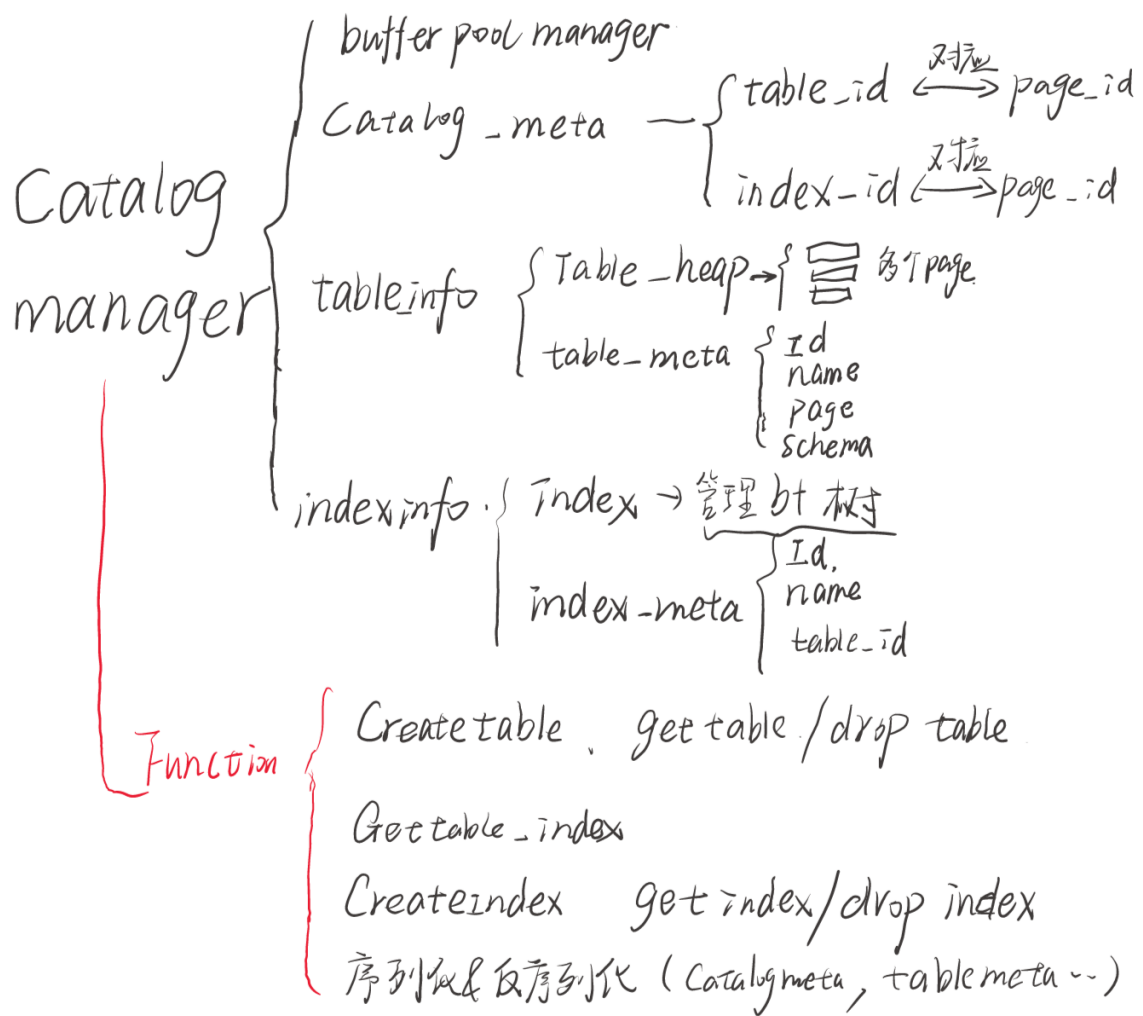 buffer pool manager
Catalog_meta
table_id 对应 page_id
index_id 对应 page_id
Catalog
manager
table_info
Table_heap → 多个page
table_meta
Id
name
page
schema
index_info
index → 管理 b+ 树
index_meta
Id.
name
table_id
Function
Createtable. get table / drop table
Gettable_index
Createindex get index / drop index
序列化&反序列化 (Catalogmeta, tablemeta...)